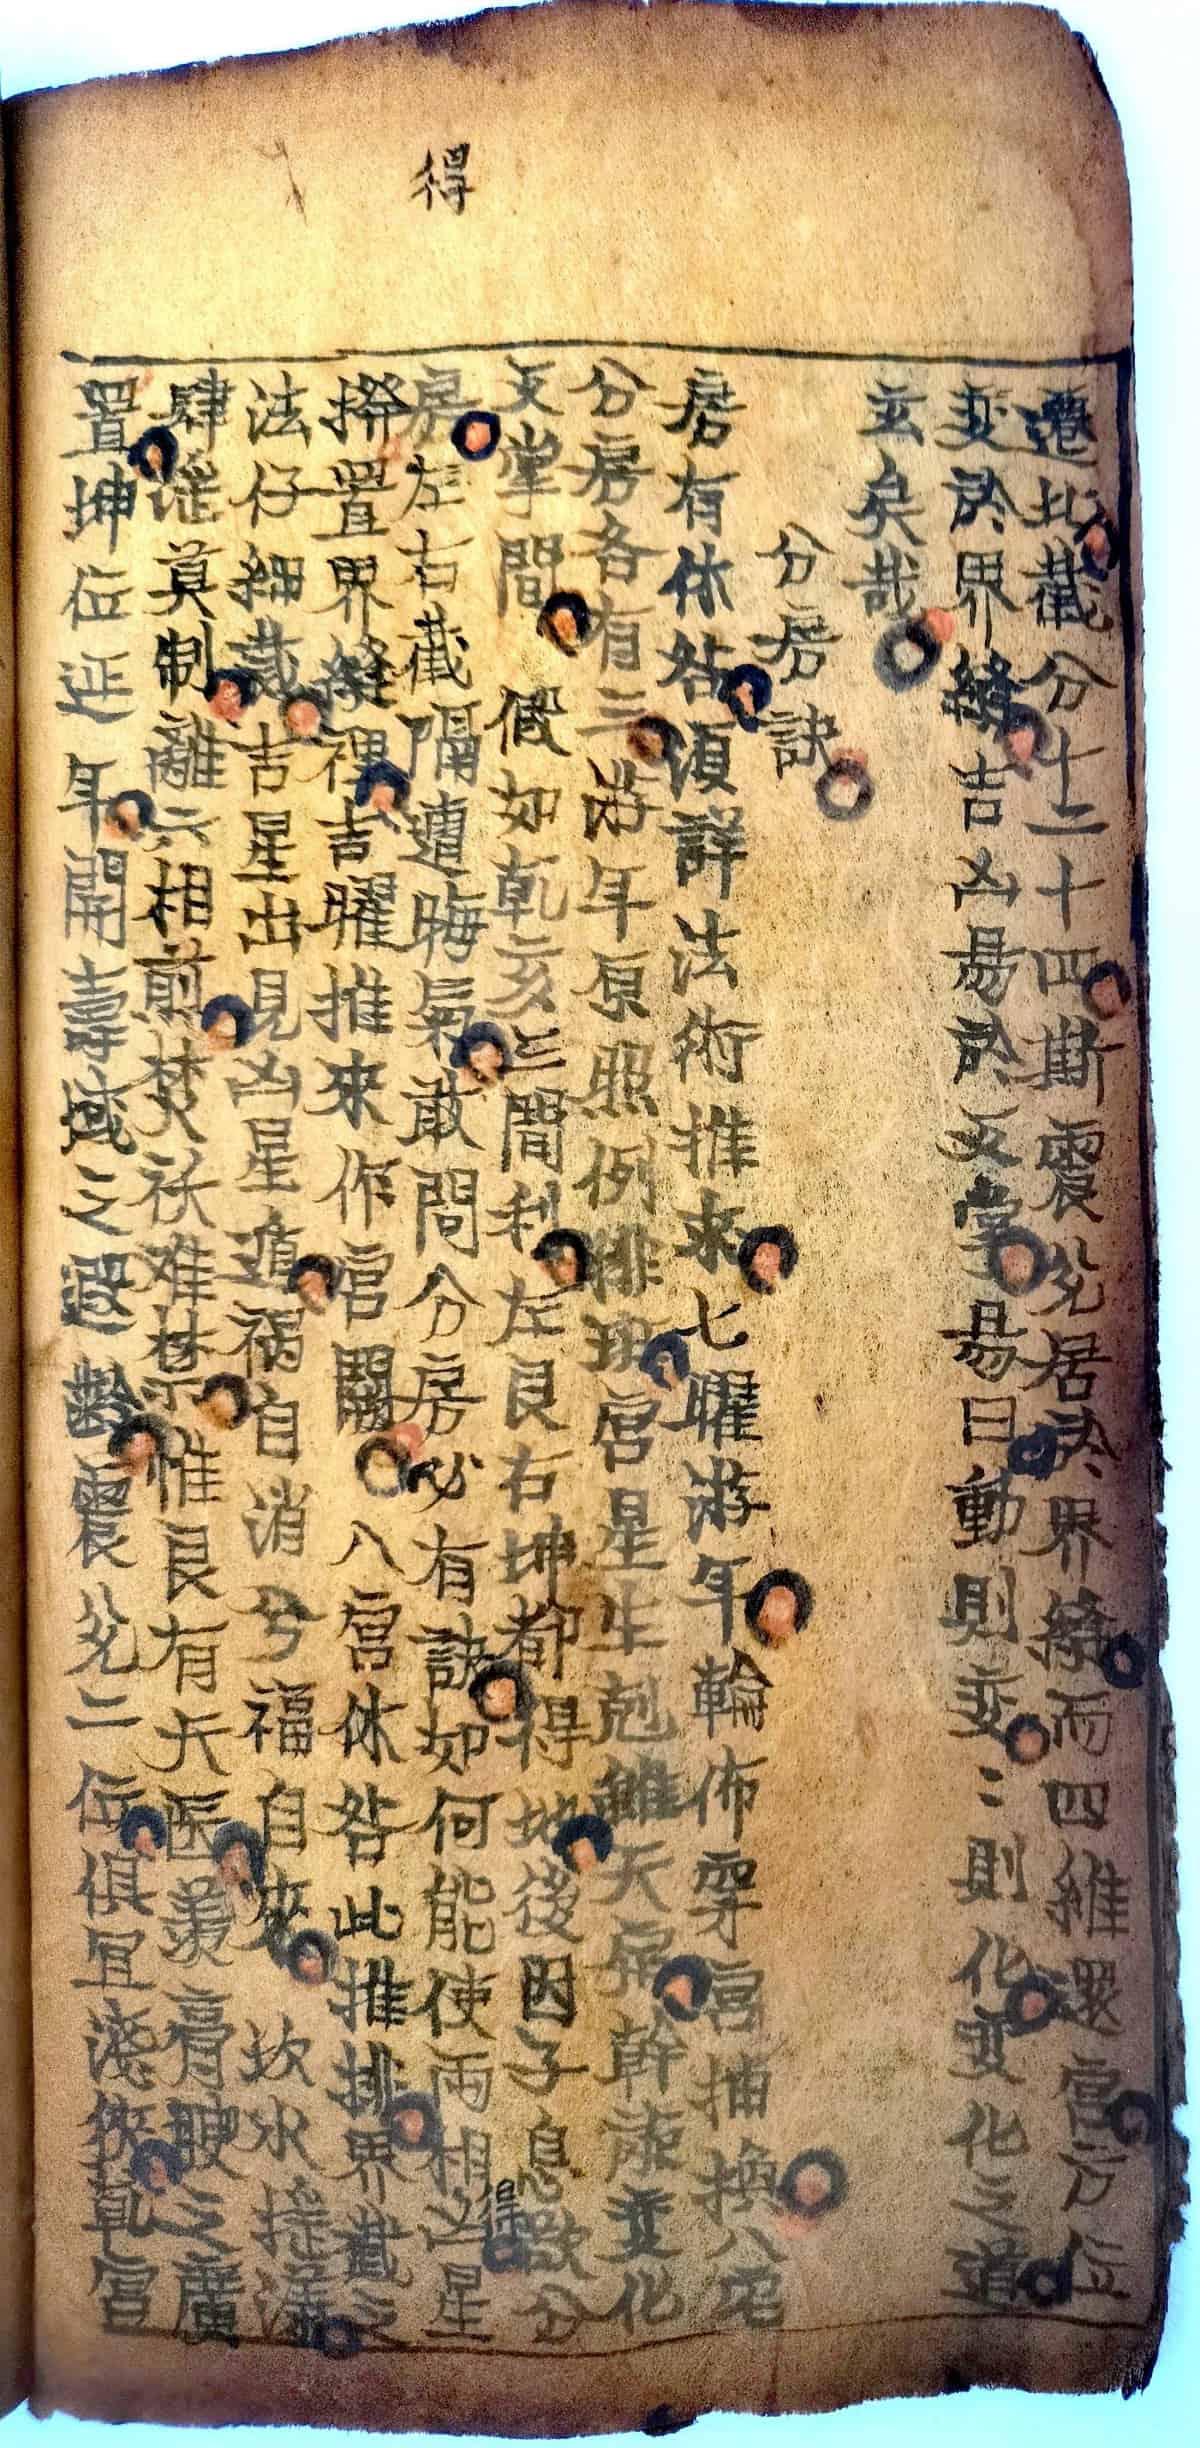 得
遷此截分十二十四斯震兌居於界縫而四維還宮方位
变於界縫吉凶昜於爻掌昜曰動則变〻則化变化之道
玄矣哉
分房訣
房有休咎須詳法術推來七曜游年輪佈穿宮抽換八宅
分房各有三游年原照例排珙宮星生剋雖天 幹旋变化
爻掌間 假如乾亥三間利左艮右坤都得地後因子息欲分
得
房左右截隔遭晦氣敢問分房必有訣如何能使兩相凶星
撥置界縫裡吉曜推來作宮關 八宮休咎此推排界截之
法仔細裁吉星出見凶星遁禍自消兮福自來 坎水搖漾
肆滛莫制離火相煎焚祅难禁惟艮有天医羨膏腴之廣
置坤位延年開壽域之遐齡震兌二位俱宜淺狹乾宮